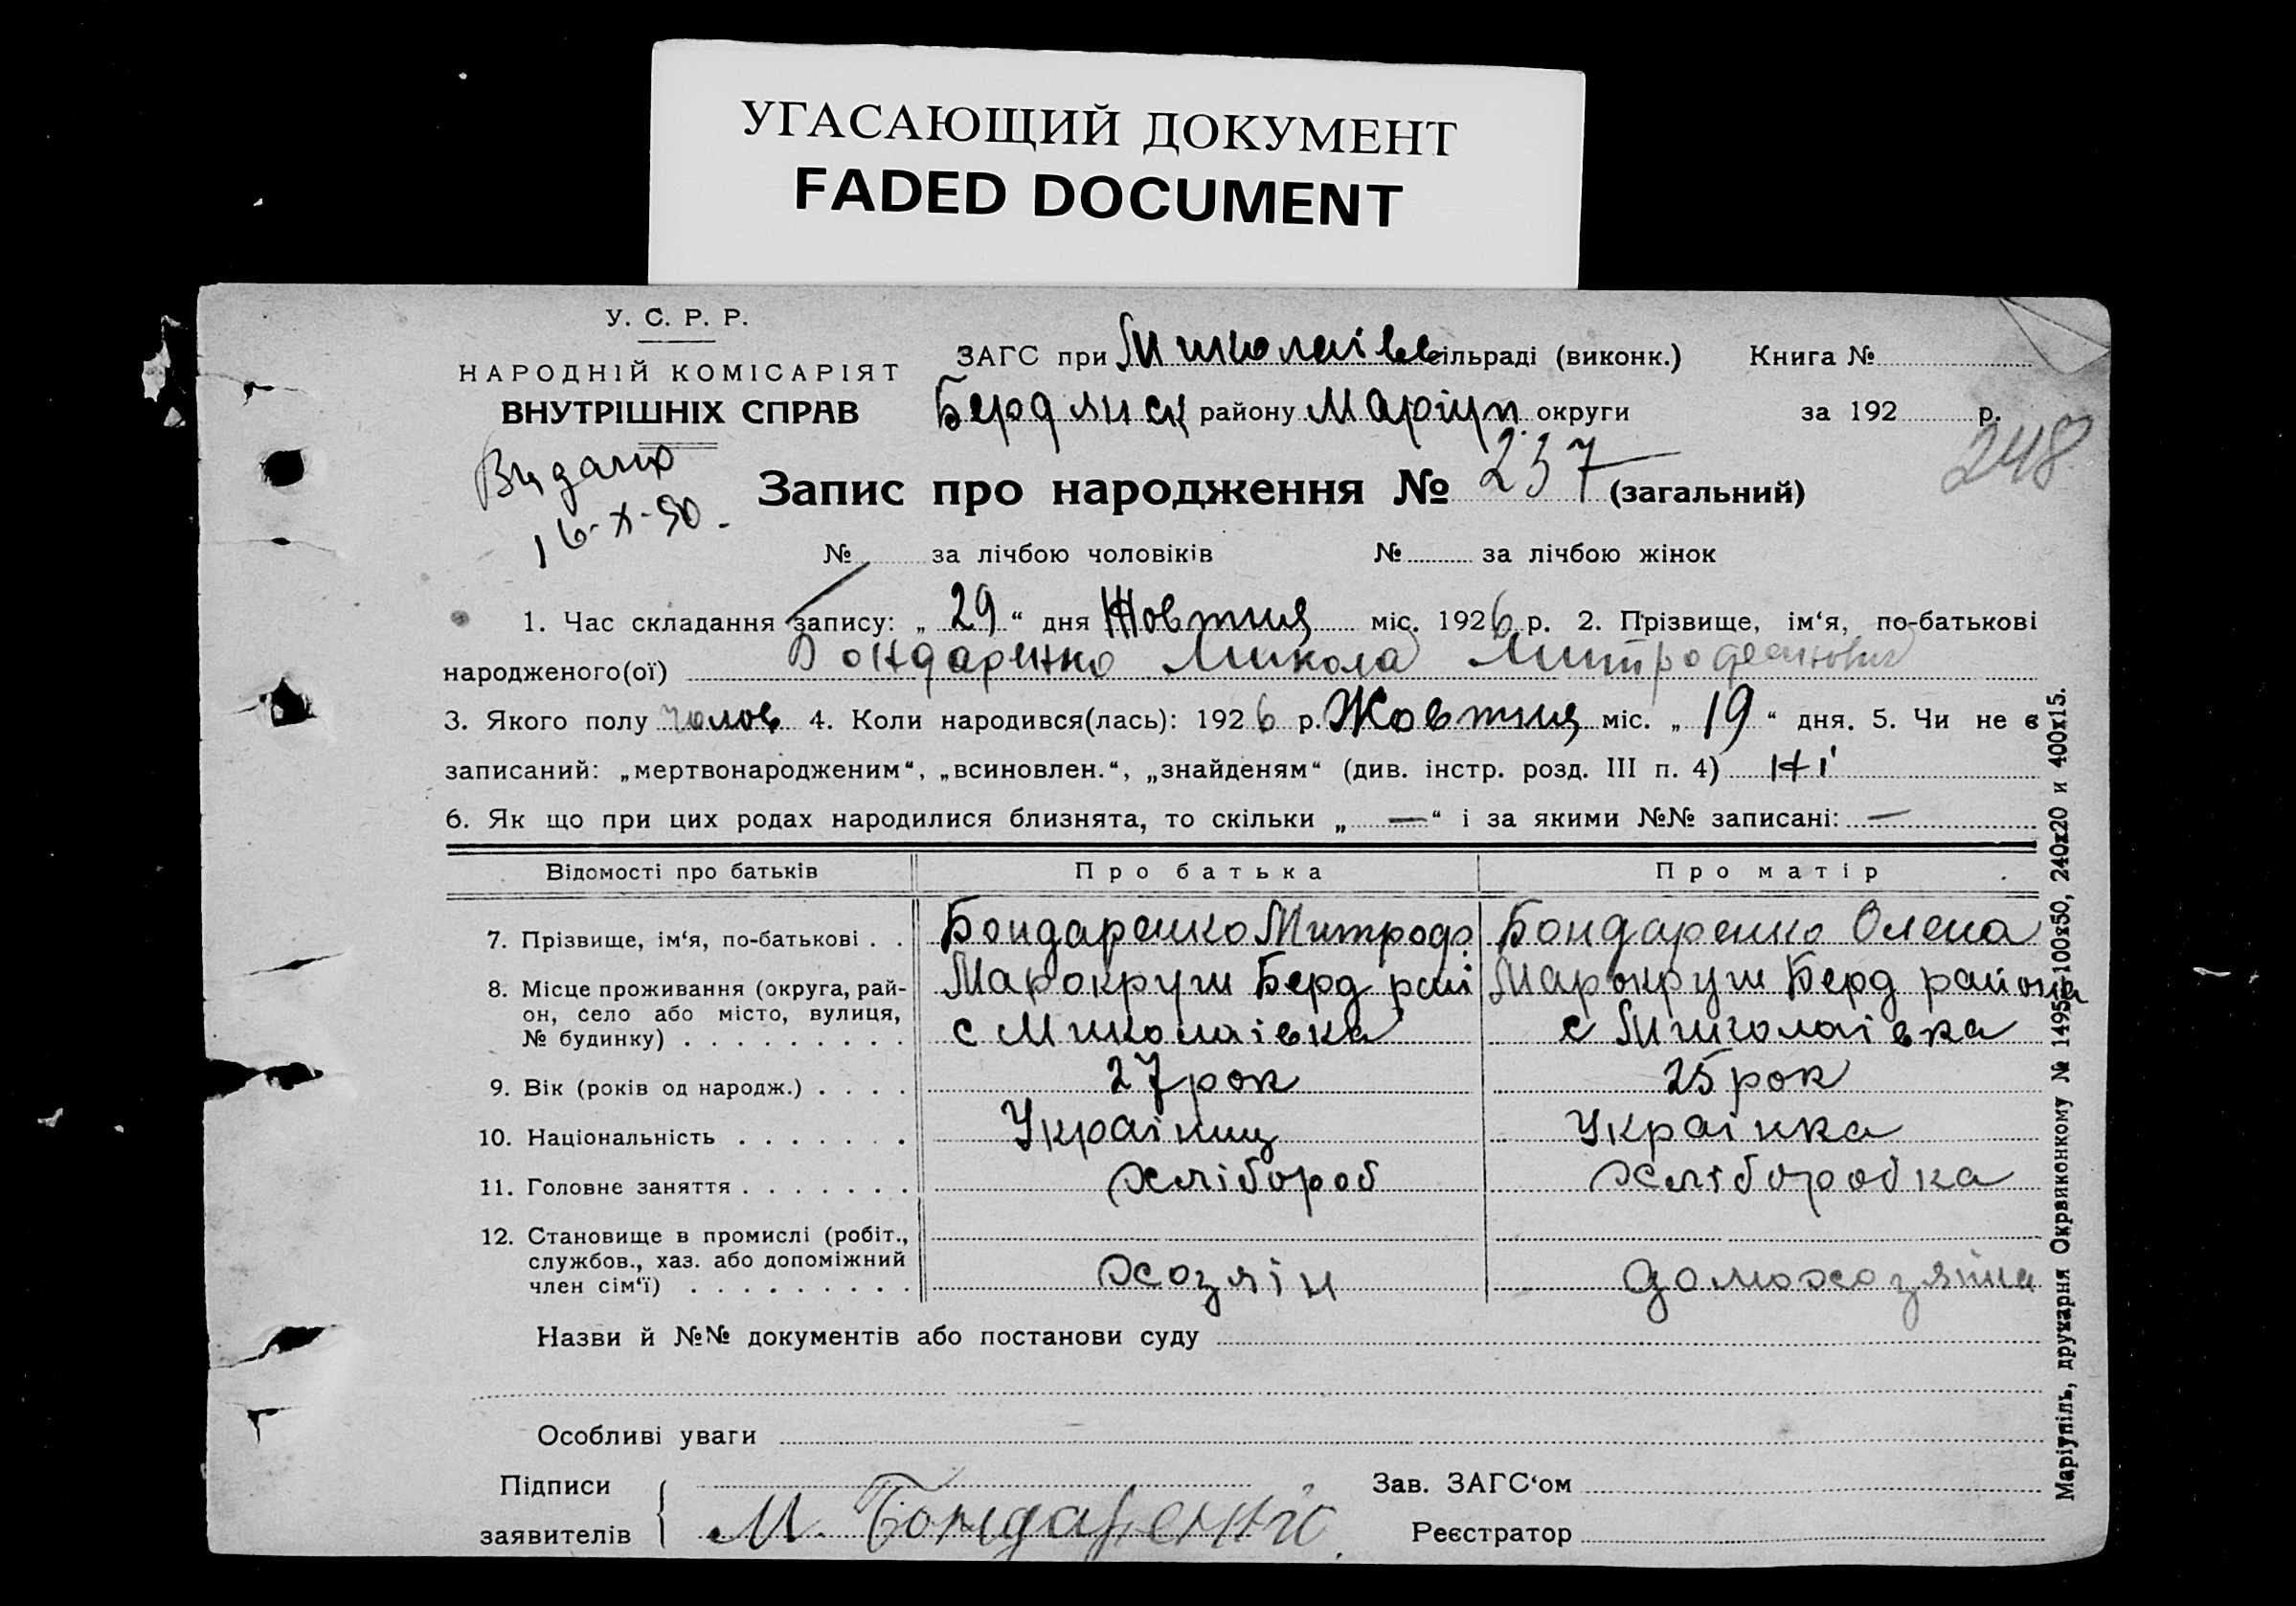 УГАСАЮЩИЙ ДОКУМЕНТ
FADED DOCUMENT
У. С. Р. Р.
НАРОДНІЙ КОМІСАРІЯТ
ВНУТРІШНІХ СПРАВ
ЗАГС при Миколаївс сільраді (виконк.) Книга №
Бердянск району Маріуп. округи за 192 р.
248
Видано
16-X-50.
Запис про народження № 237 (загальний)
№ за лічбою чоловіків № за лічбою жінок
1. Час складання запису: „ 29 “ дня Жовтня міс. 1926 р. 2. Прізвище, ім‘я, по-батькові
народженого(ої) Бондаренко Микола Митрофанович
3. Якого полу чолов 4. Коли народився(лась): 1926 р. Жовтня міс. „ 19 “ дня. 5. Чи не є
записаний: „мертвонародженим“, „всиновлен.“, „знайденям“ (див. інстр. розд. III п. 4) Ні
6. Як що при цих родах народилися близнята, то скільки „ — “ і за якими №№ записані: —
Відомості про батьків Про батька Про матір
7. Прізвище, ім‘я, по-батькові . . Бондаренко Митроф Бондаренко Олена
8. Місце проживання (округа, рай- Марокруги Берд рай Марокруги Берд района
он, село або місто, вулиця, с Миколаівка с Миколаівка
№ будинку) . . . . . . . . .
9. Вік (років од народж.) . . . . 27 рок 25 рок
10. Національність . . . . . . . Украінец Украінка
11. Головне заняття . . . . . . . хлібороб хліборобка
12. Становище в промислі (робіт.,
службов., хаз. або допоміжний хозяін домохозяйка
член сім‘ї) . . . . . . . . .
Назви й №№ документів або постанови суду
Особливі уваги
Підписи Зав. ЗАГС‘ом
заявителів М. Бондаренко. Реєстратор
Маріупіль, друкарня Окрвиконкому № 1495-100x50, 240x20 и 400x15.